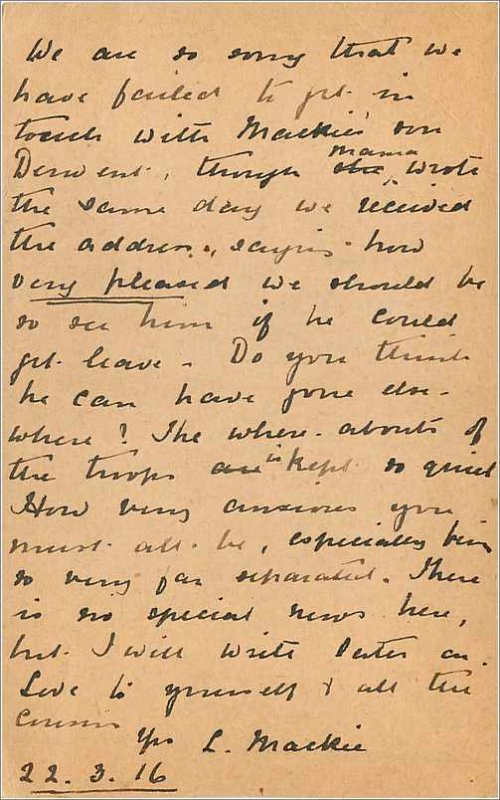 We are so sorry that we
have failed to get in
touch with Mackie's son
Derwent, though she Mama wrote
the same day we received
the address, saying how
very pleased we should be
so see him if he could
get leave. Do you think
he can have gone else-
where? The where-abouts of
the troops are is kept so quiet
How very anxious you
must all be, especially being
so very far separated. There
is no special news here,
but I will write later on.
Love to yourself & all the
cousins
Yrs L. Mackie
22.3.16